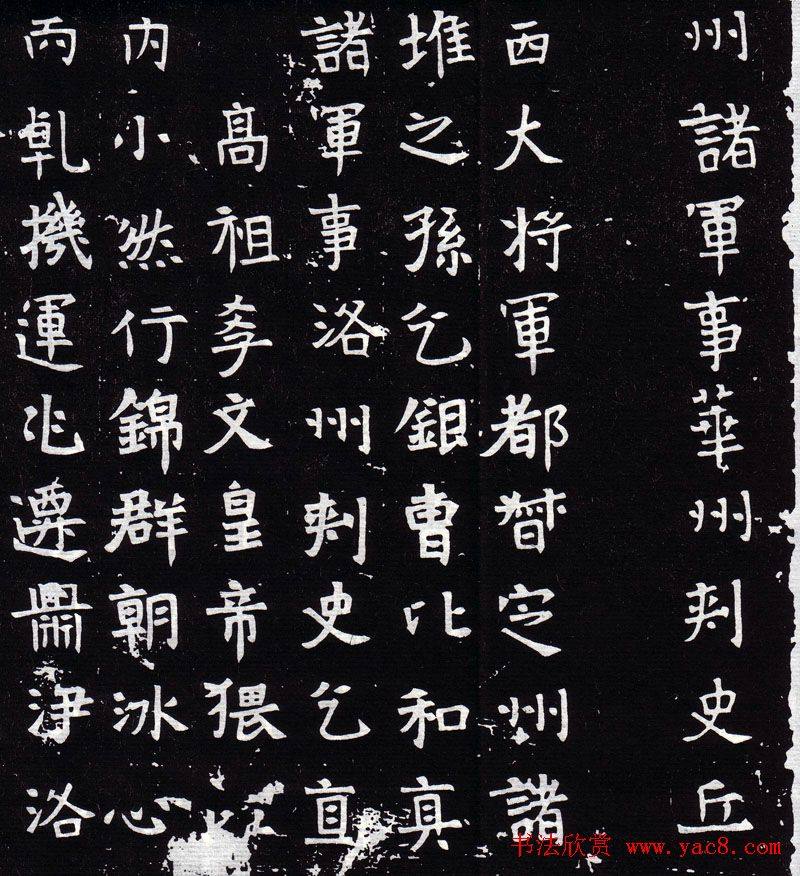 州諸軍事華州刾史丘
西大将軍都督定州諸
堆之孫乞銀曹比和真
諸軍事洛州刾史乞直
高祖孝文皇帝猥
内小然行錦群朝冰心
丙乹機運兆遷鼎伊洛
书法欣赏 www.yac8.com